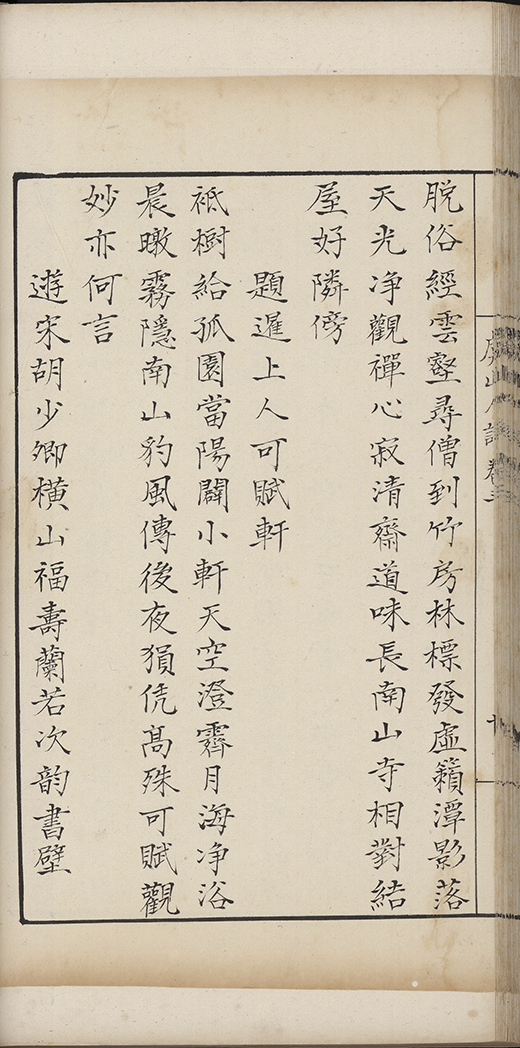 脱俗經雲壑尋僧到竹房林標發虛籟潭影落
天光净觀禪心寂清齋道味長南山寺相對結
屋好隣傍
題暹上人可賦軒
祗樹給孤園當陽闢小軒天空澄霽月海净浴
晨暾霧隱南山豹風傳後夜猿凭髙殊可賦觀
妙亦何言
遊宋胡少卿橫山福壽蘭若次韵書壁